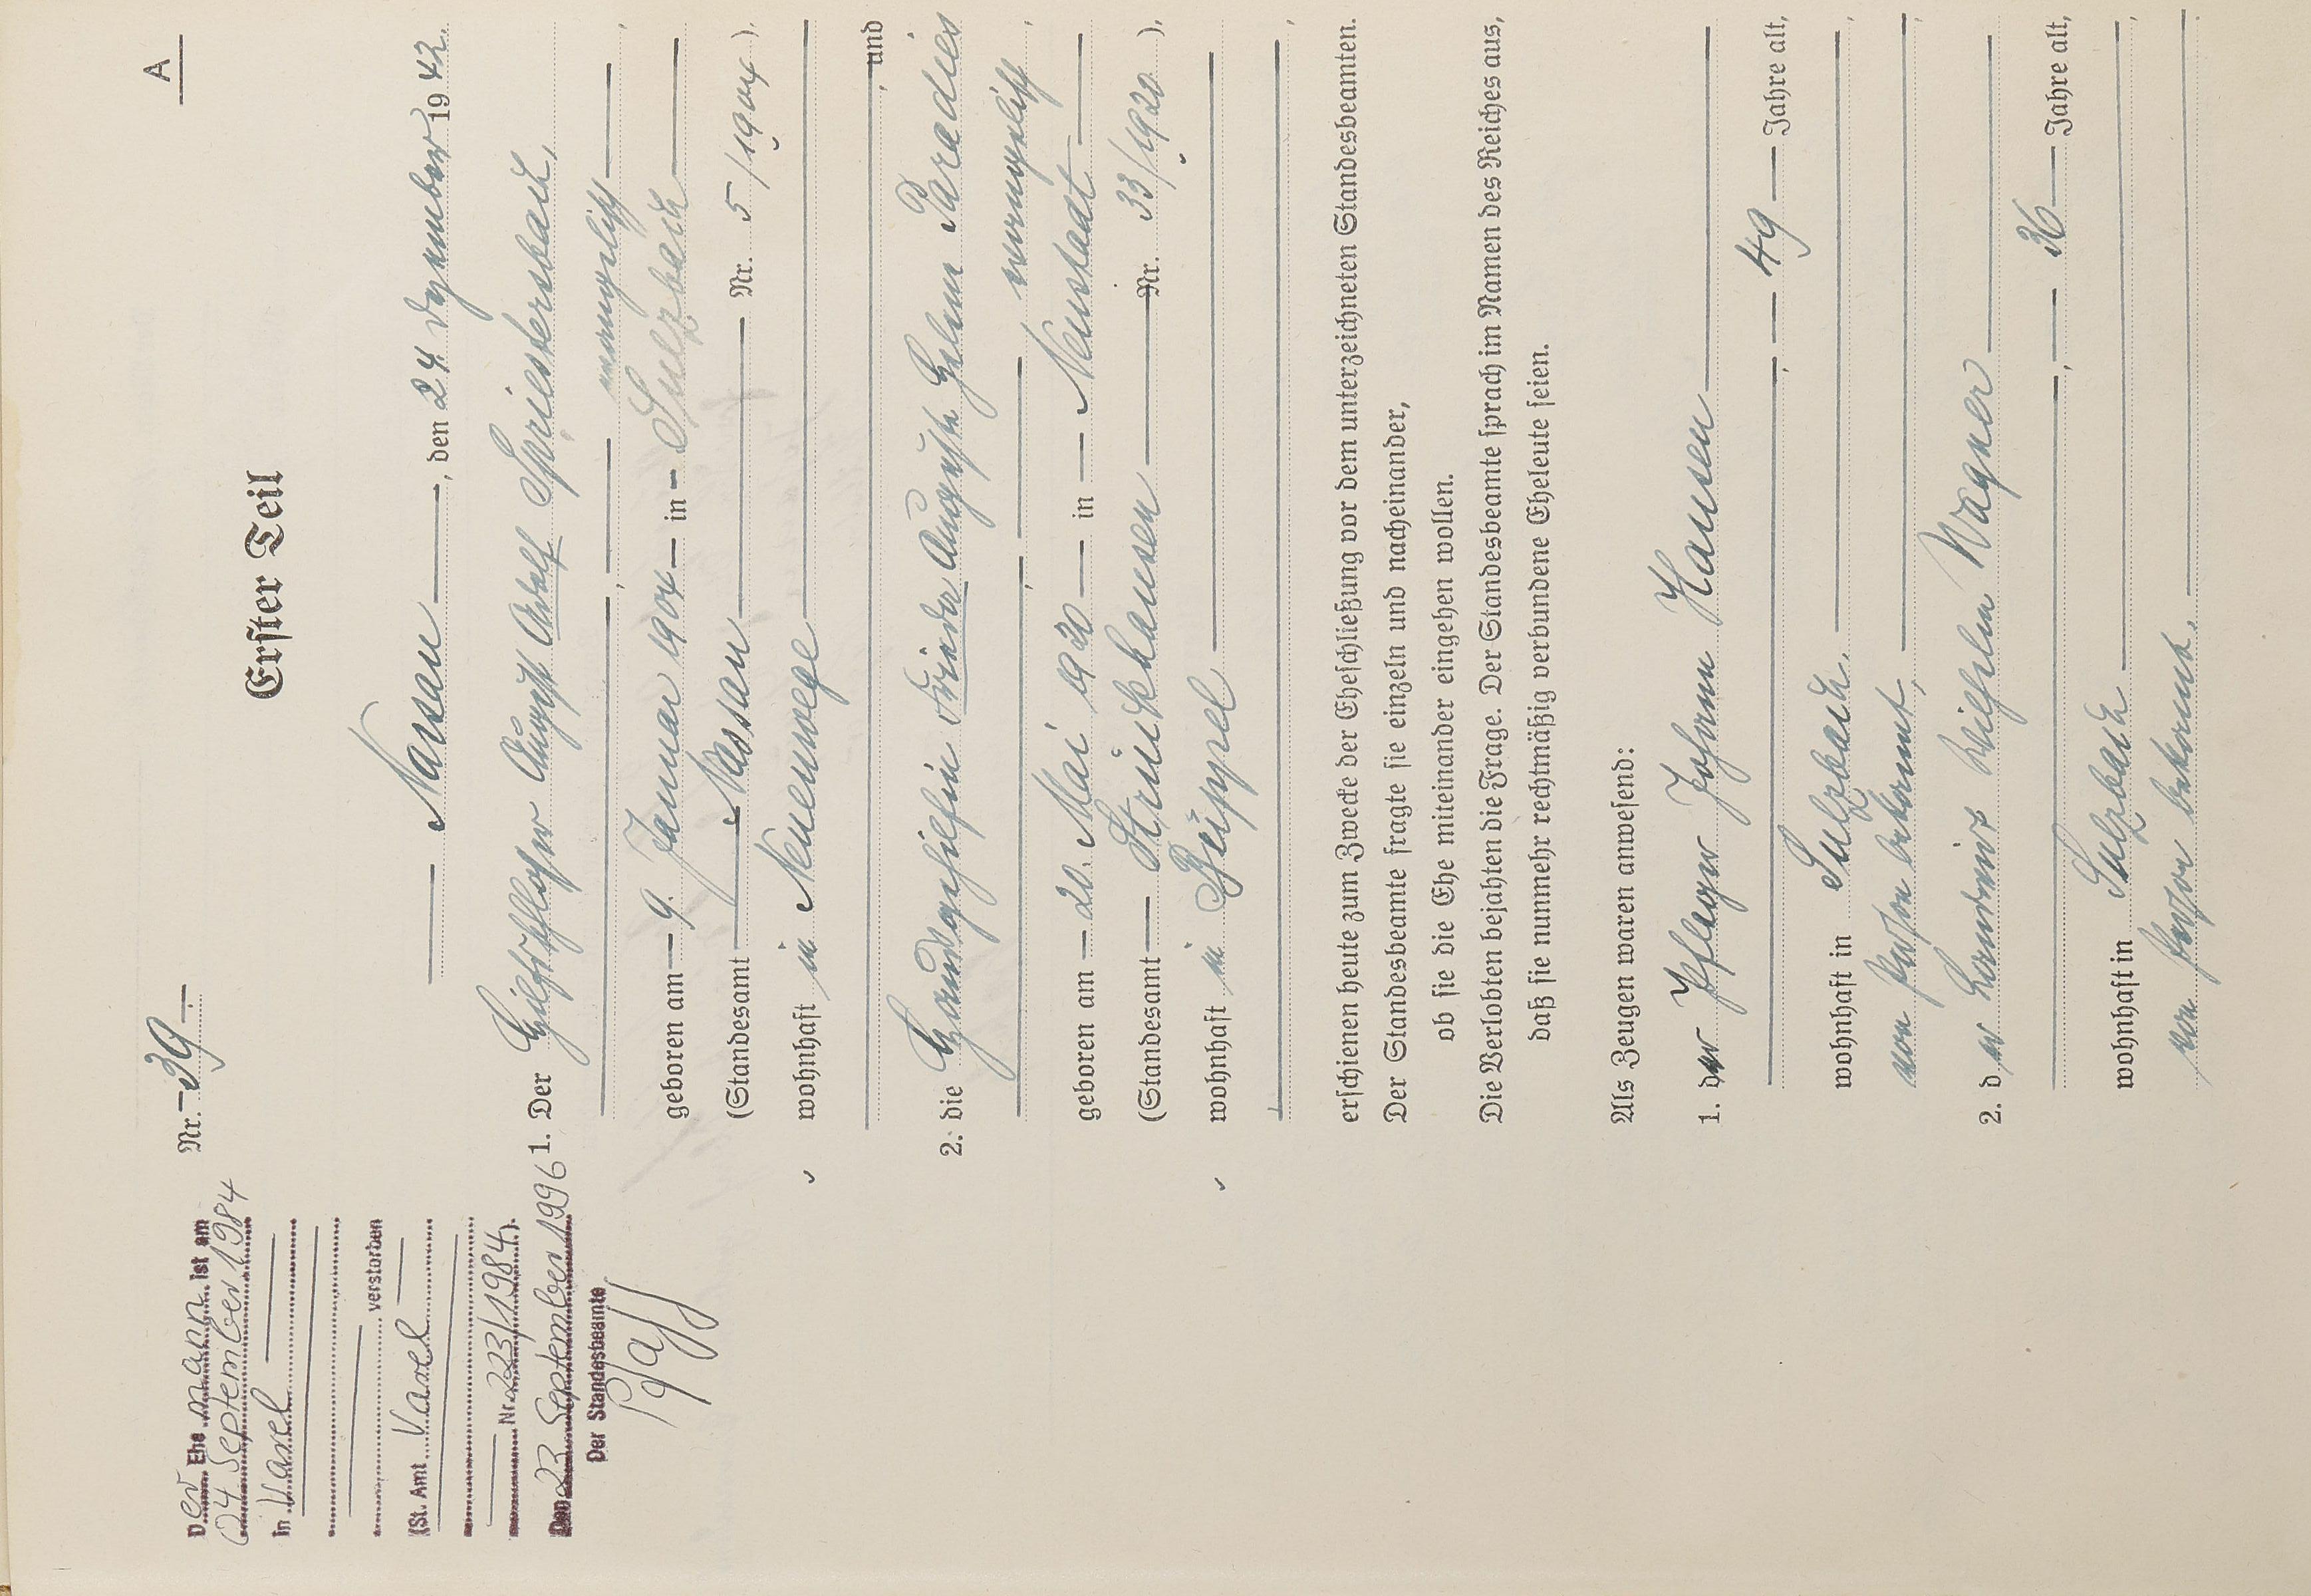 A
Nr. 39
Erster Teil
Nassau, den 24. Dezember 1942.
1. Der Hilfsschlosser August Adolf Spriestersbach,
evangelisch
geboren am 9. Januar 1904 in Sulzbach
(Standesamt Nassau Nr. 5/1904).
wohnhaft in Neuenwege
, und
2. die Hausgehilfin Frieda Auguste Helene Paradies
, evangelisch
geboren am 20. Mai 1920 in Neustadt
(Standesamt Strückhausen Nr. 33/1920).
wohnhaft in Büppel
erschienen heute zum Zwecke der Eheschließung vor dem unterzeichneten Standesbeamten.
Der Standesbeamte fragte sie einzeln und nacheinander,
ob sie die Ehe miteinander eingehen wollen.
Die Verlobten bejahten die Frage. Der Standesbeamte sprach im Namen des Reiches aus,
daß sie nunmehr rechtmäßig verbundene Eheleute seien.
Als Zeugen waren anwesend:
1. der Pfleger Johann Hansen
, 49 Jahre alt,
wohnhaft in Sulzbach.
von Person bekannt,
2. der Landwirt Wilhelm Wagner
, 36 Jahre alt,
wohnhaft in Sulzbach
von Person bekannt.
Der Ehemann ist am
24. September 1984
in Varel
verstorben
(St. Amt Varel
Nr. 223/1984).
Den 23. September 1996
Der Standesbeamte